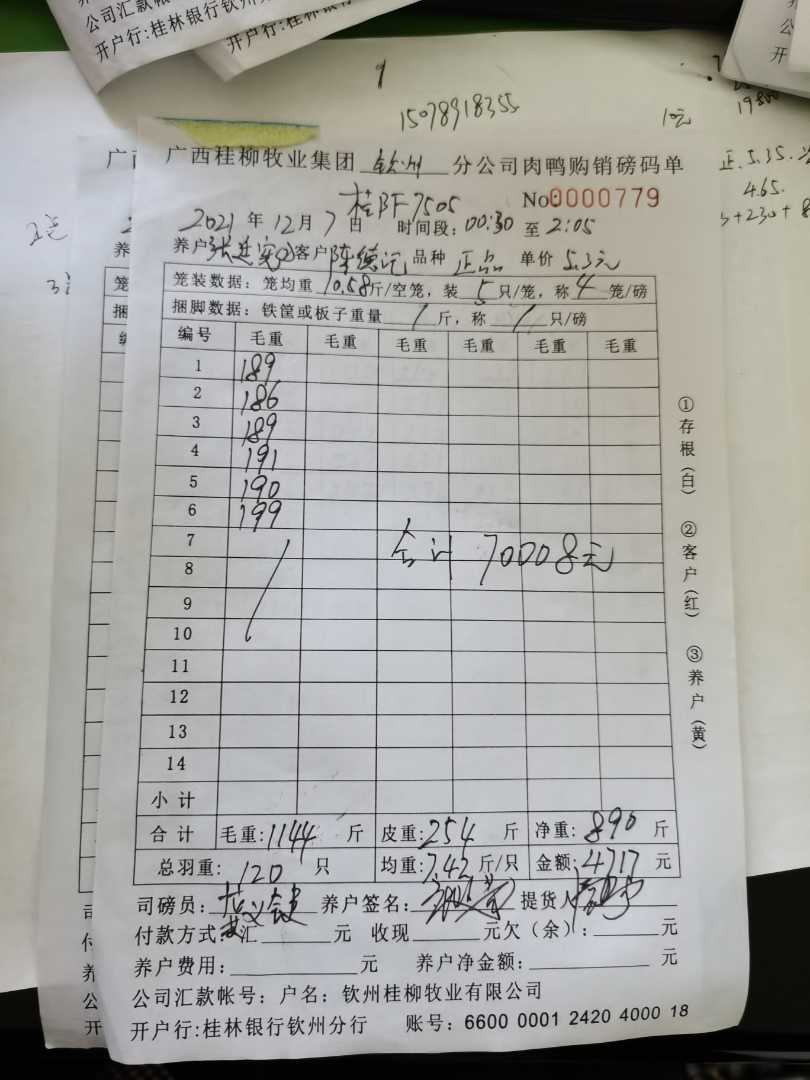 公司汇款帐
开户行:桂林银行钦州
开户行:桂林银行
15078918355
10元
正.5.35.
465.
+230+8
广西桂柳牧业集团 钦州 分公司肉鸭购销磅码单
桂BF7505 No0000779
2021年12月7日 时间段:00:30 至 2:05
养户 客户 陈德记 品种 正品 单价 5.3元
笼装数据: 笼均重 10.58斤/空笼, 装 5 只/笼, 称 4 笼/磅
捆脚数据: 铁筐或板子重量 / 斤, 称 / 只/磅
编号 毛重 毛重 毛重 毛重 毛重 毛重
1 189
2 186
3 189
4 191
5 190
6 199
7
合计 70008元
8
9
10
11
12
13
14
小计
合计 毛重:1144 斤 皮重:254 斤 净重:890 斤
总羽重: 120 只 均重:7.42斤/只 金额:4717 元
司磅员: 养户签名: 提货人
付款方式: 汇 元 收现 元欠(余): 元
养户费用: 元 养户净金额: 元
公司汇款帐号: 户名: 钦州桂柳牧业有限公司
开户行:桂林银行钦州分行 账号: 6600 0001 2420 4000 18
①存根(白) ②客户(红) ③养户(黄)